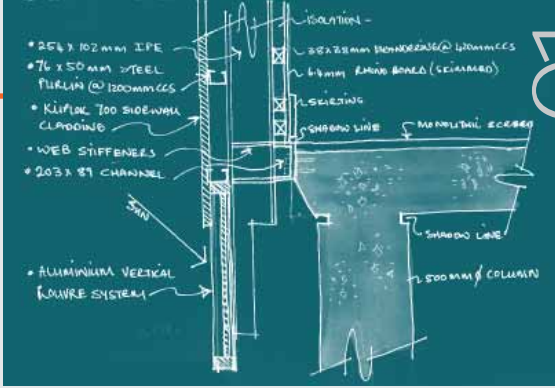 • 254 x 102 mm IPE
• 76 x 50 mm STEEL
PURLIN @ 1200mm CCS
• KLIPLOK 700 SIDEWALL
CLADDING
• WEB STIFFENERS
• 203 x 89 CHANNEL
SUN
• ALUMINIUM VERTICAL
LOUVRE SYSTEM
ISOLATION -
38x38mm BRANDERING @ 400mm CCS
6.4mm RHINO BOARD (SKIMMED)
SKIRTING
SHADOW LINE
MONOLITHIC SCREED
SHADOW LINE
500mm ϕ COLUMN
01